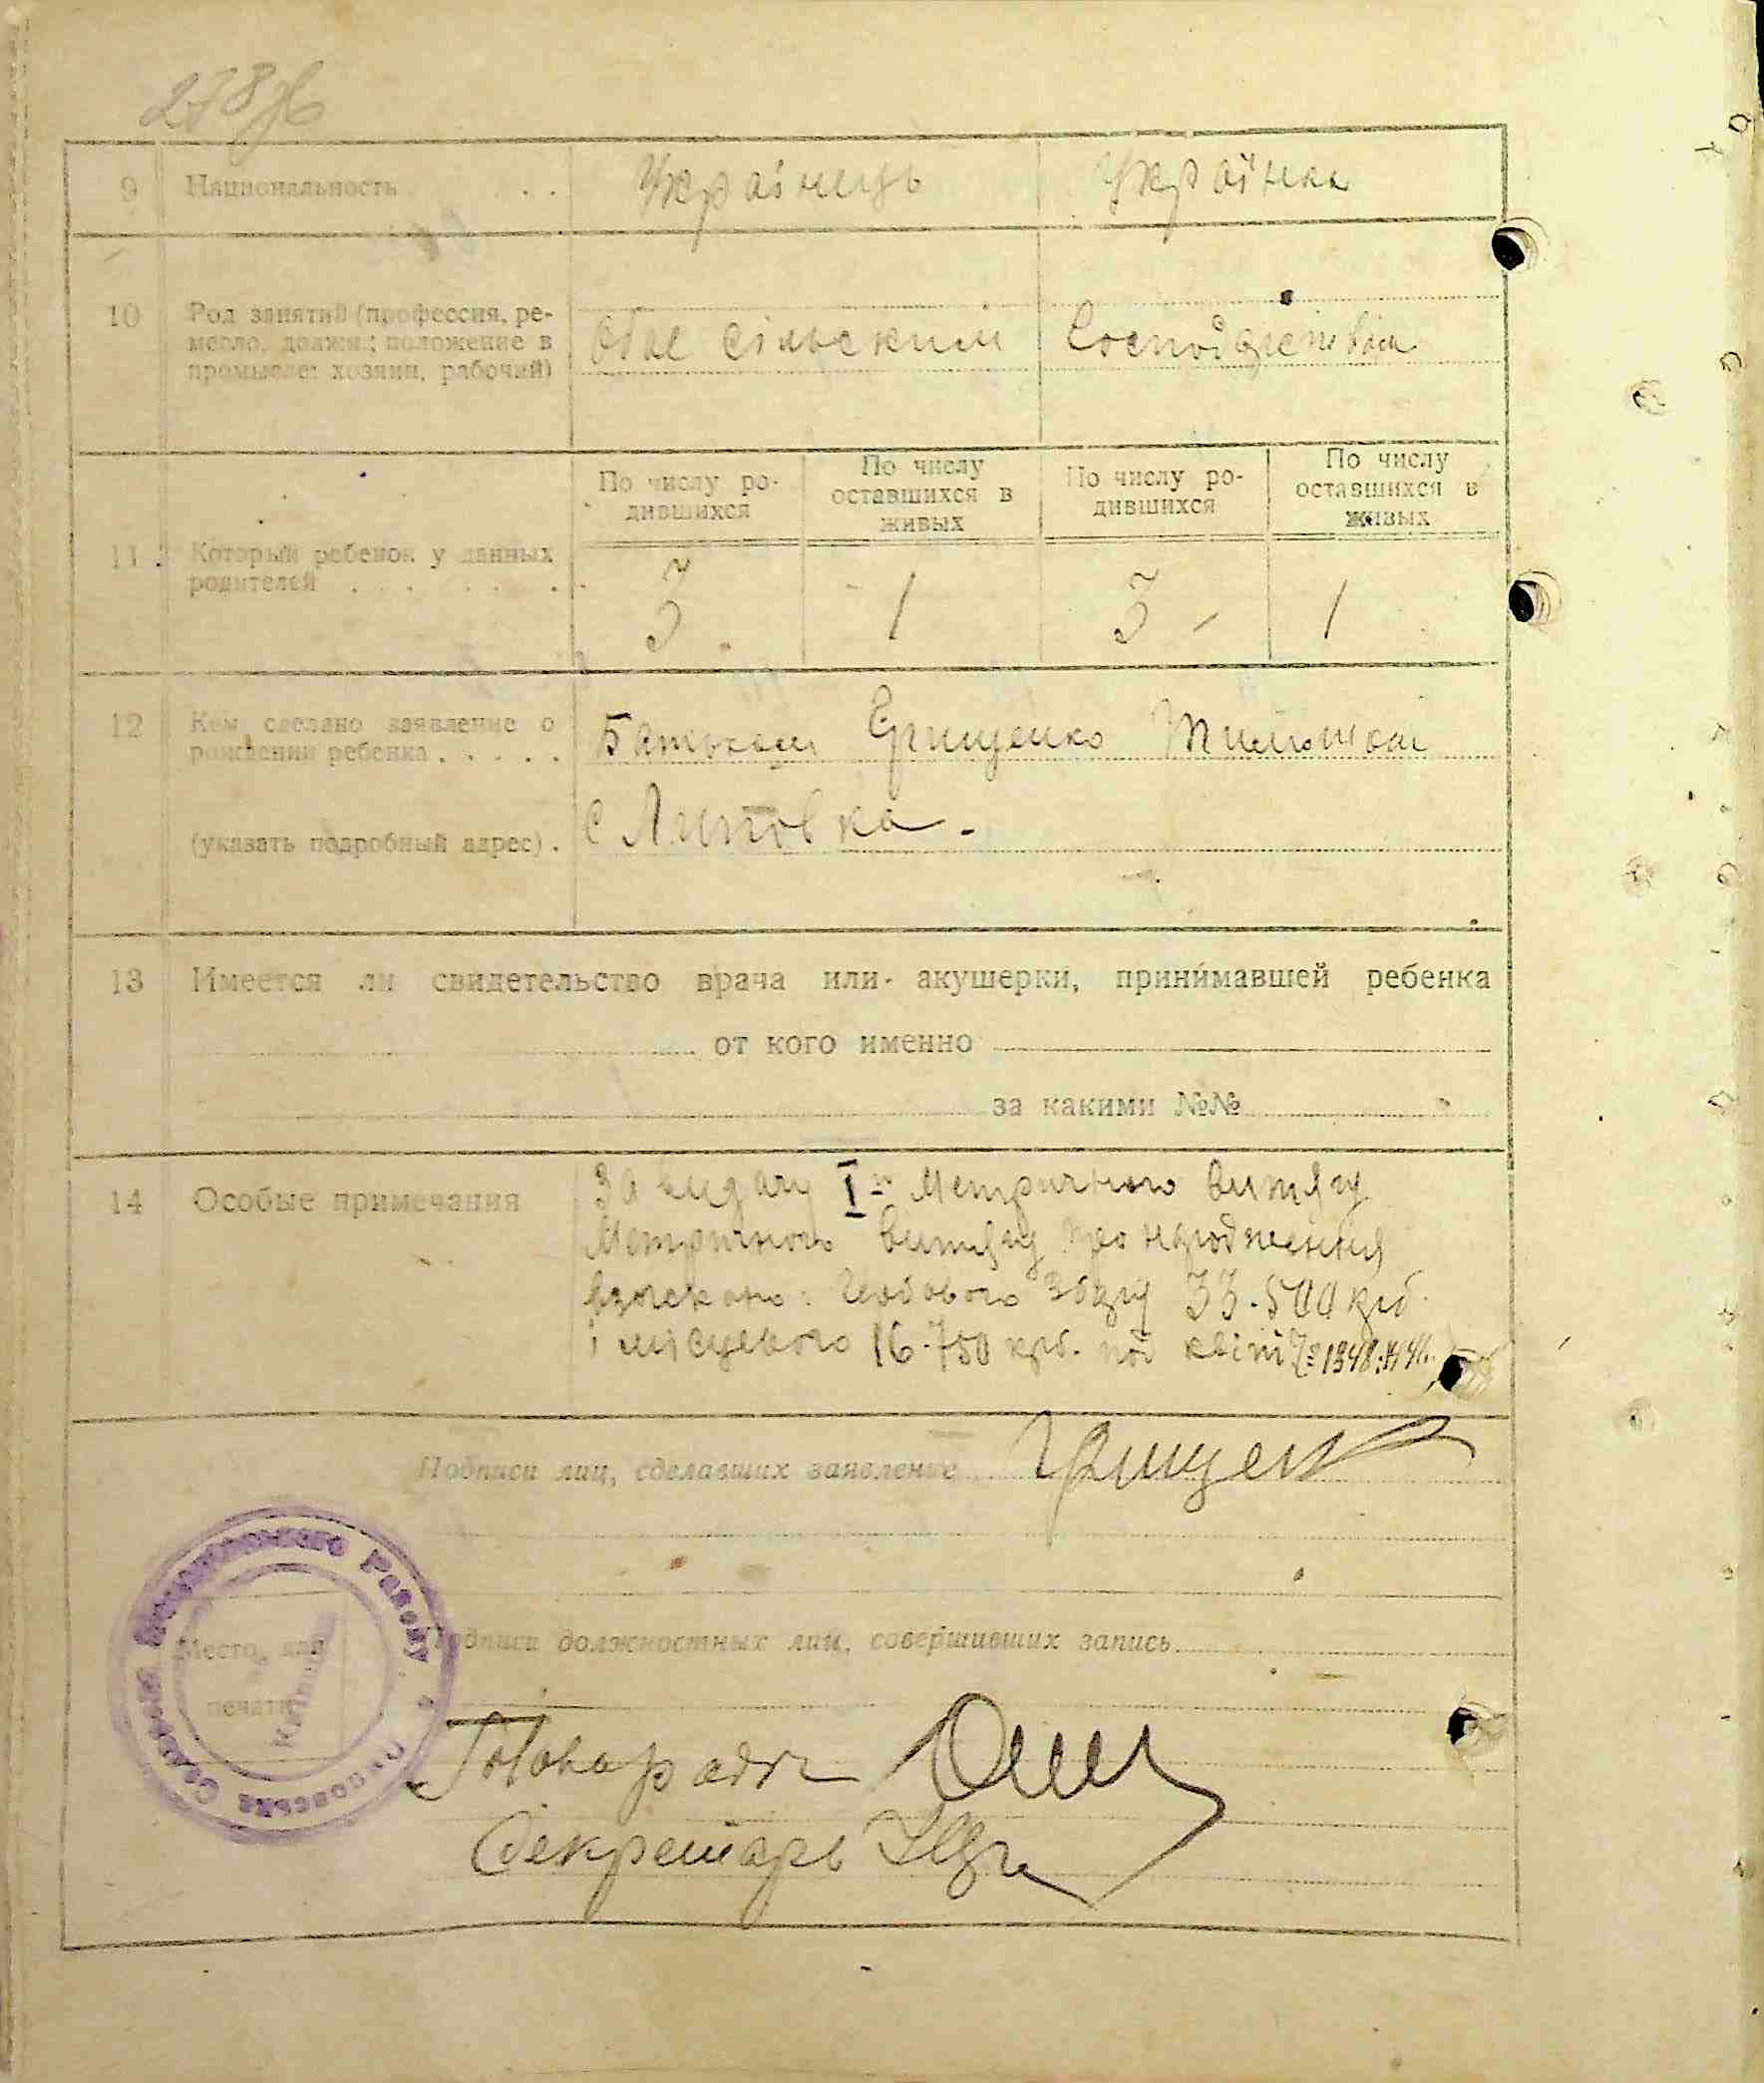 9 Национальность . . Українець Українка
10 Род занятий (профессия, ре-
месло, должн.; положение в
промысле: хозяин, рабочий)
сільским Господарством
По числу ро-
дившихся
По числу
оставшихся в
живых
По числу ро-
дившихся
По числу
оставшихся в
живых
11 Который ребенок у данных
родителей . . . . . .
3 1 3 1
12 Кем сделано заявление о
рождении ребенка . . . . .
Батьком Грищенко Тимошом
(указать подробный адрес) . с Липовка.
13 Имеется ли свидетельство врача или акушерки, принимавшей ребенка
от кого именно
за какими №№
14 Особые примечания
За видачу I Метричного витягу
Метричного витягу про народження
взыскано: Гербового збору 33.500 крб.
і місцевого 16.750 крб. по квіт № 1348
Подписи лиц, сделавших заявление Грищенко
Подписи должностных лиц, совершивших запись
Место для
печати
Району
Секретарь